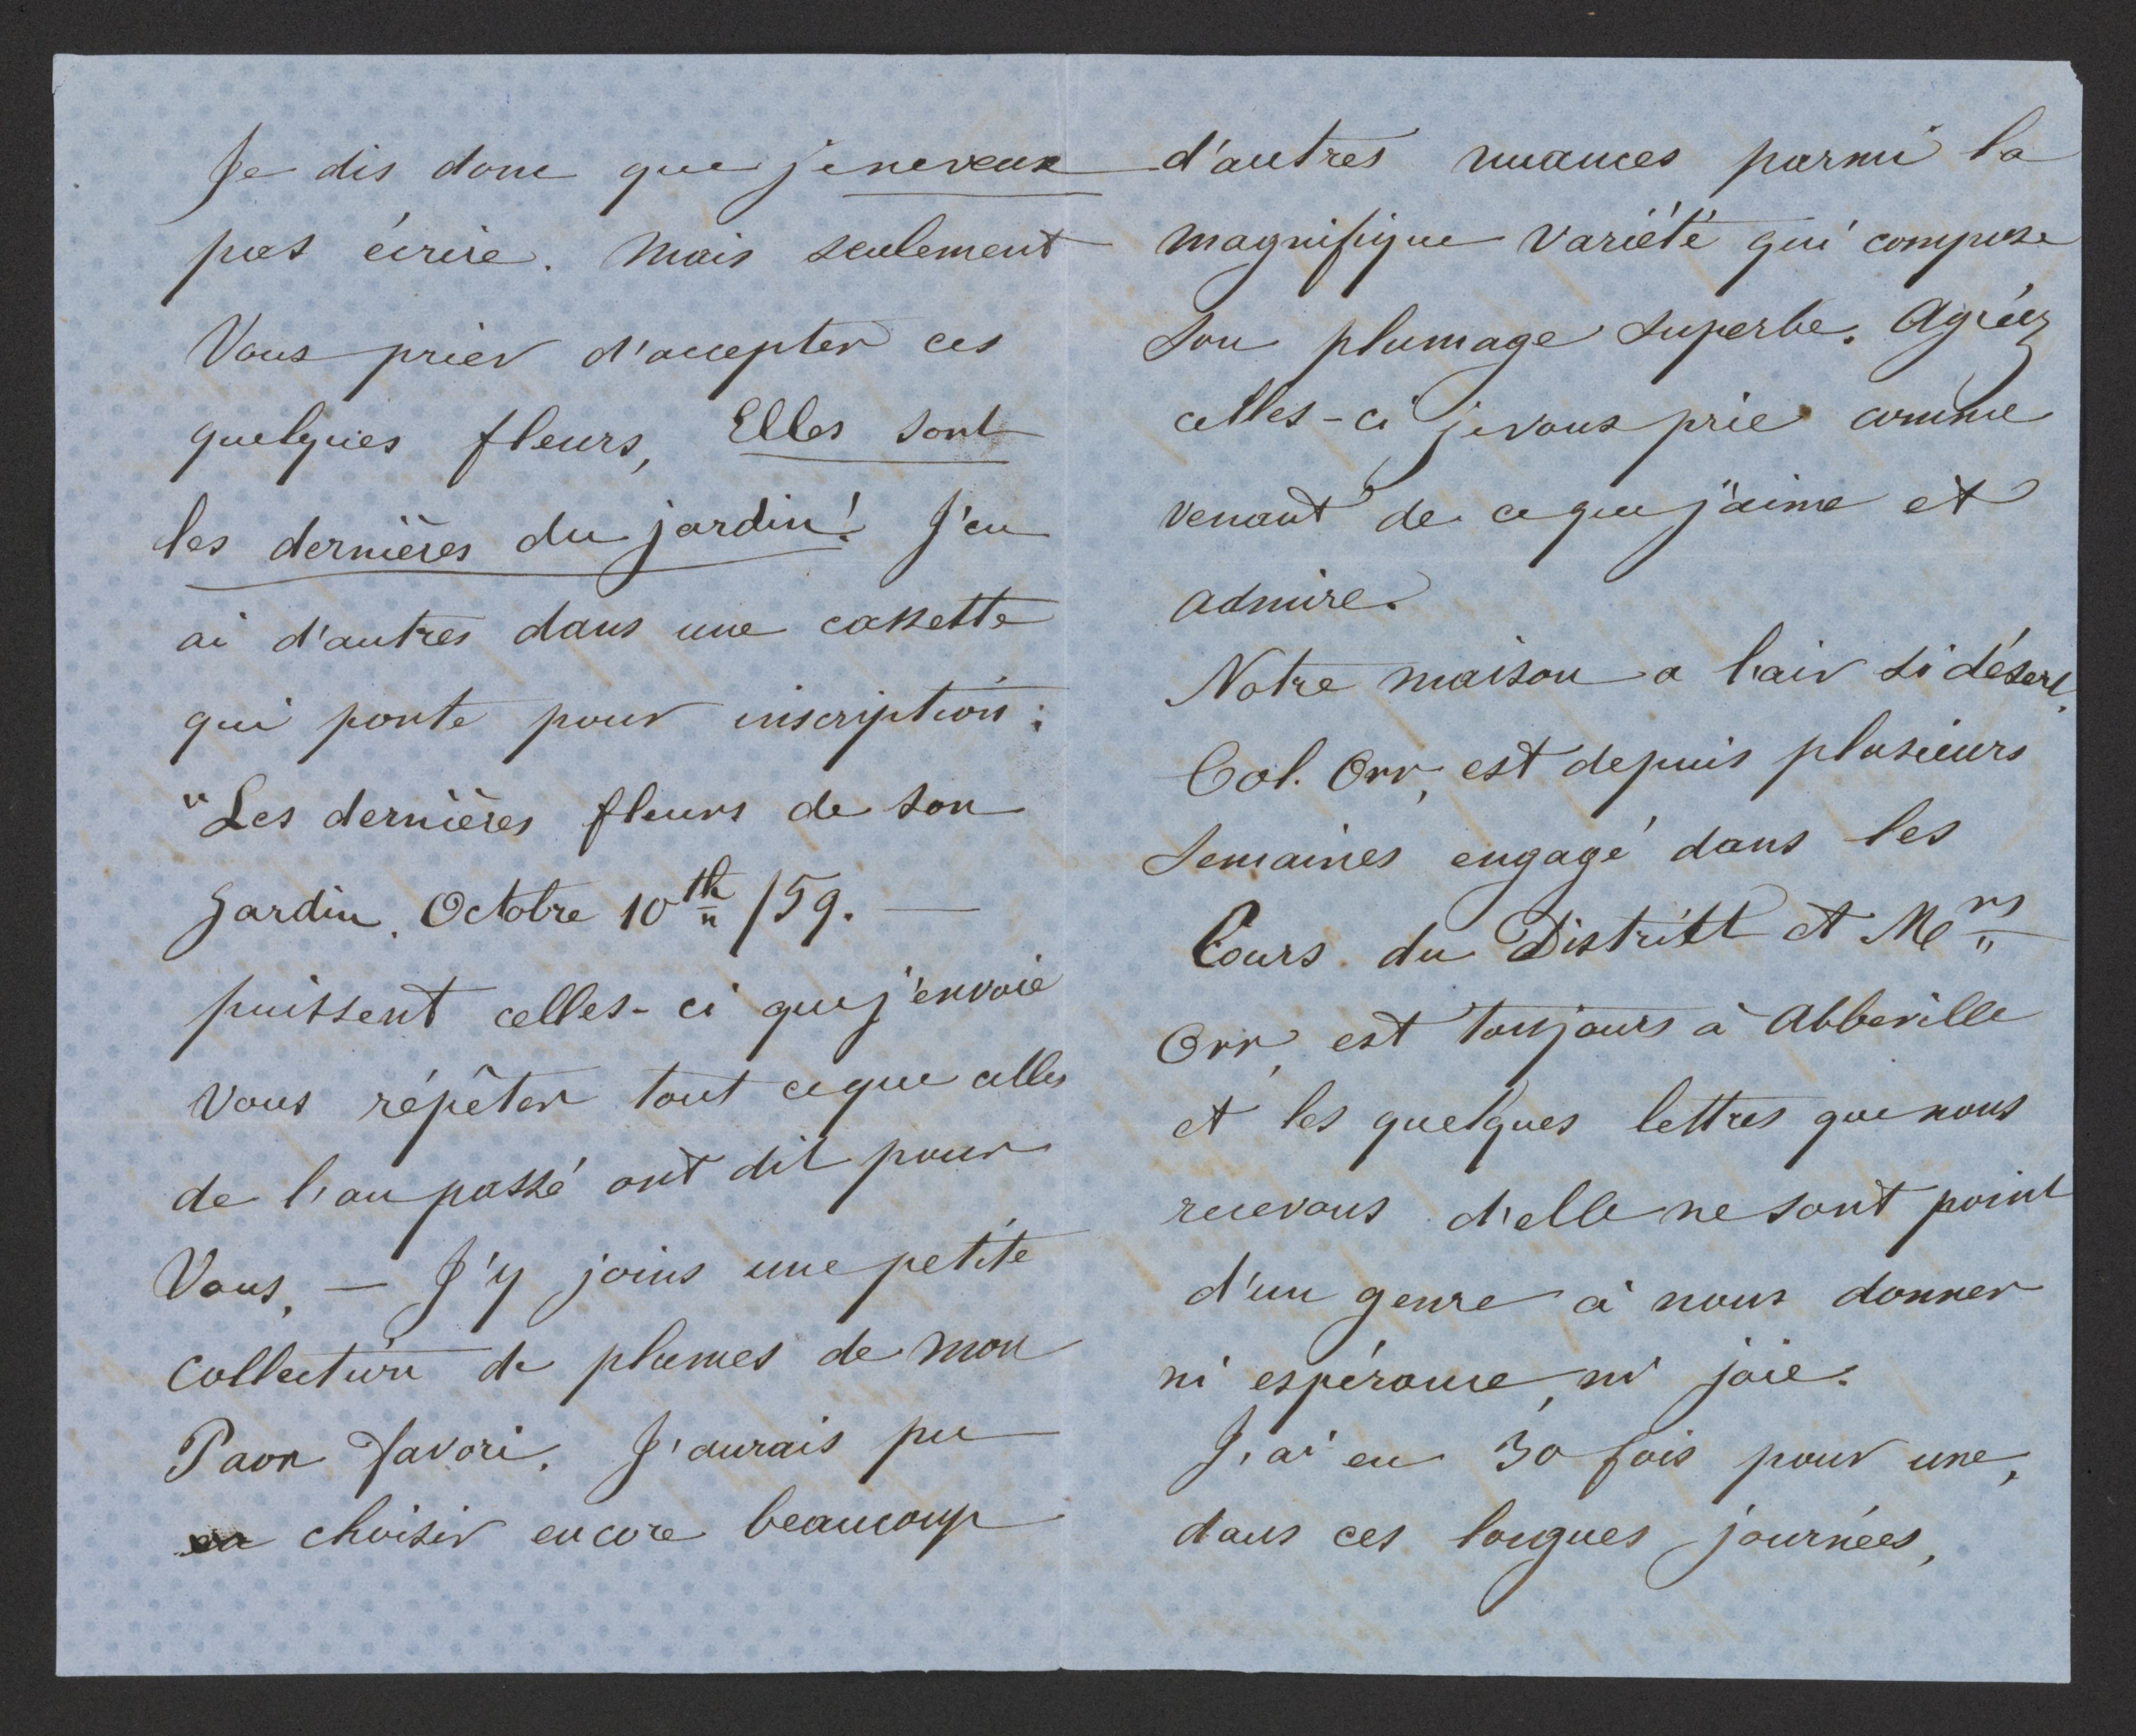 Je dis donc que je ne veux
pas écrire. Mais seulement
Vous prier d'accepter ces
quelques fleurs, Elles sont
les dernières du jardin! J'en
ai d'autres dans une cassette
qui porte pour inscription:
"Les dernières fleurs de son
Jardin. Octobre 10th /59. —
puissent celles-ci que j'envoie
Vous répéter tout ce que celles
de l'an passé ont dit pour
Vous, — J'y joins une petite
collection de plumes de mon
Paon favori. J'aurais pu
en choisir encore beaucoup
d'autres nuances parmi la
magnifique Variété qui compose
son plumage superbe. Agréez
celles-ci je vous prie comme
venant de ce que j'aime et
admire.
Notre maison a l'air si désert,
Col. Orr, est depuis plusieurs
Semaines engagé dans les
Cours du Distritt et Mrs
Orr, est toujours à Abbeville
et les quelques lettres que nous
recevons d'elle ne sont point
d'un genre à nous donner
ni espérance, ni joie.
J'ai eu 30 fois pour une,
dans ces longues journées,